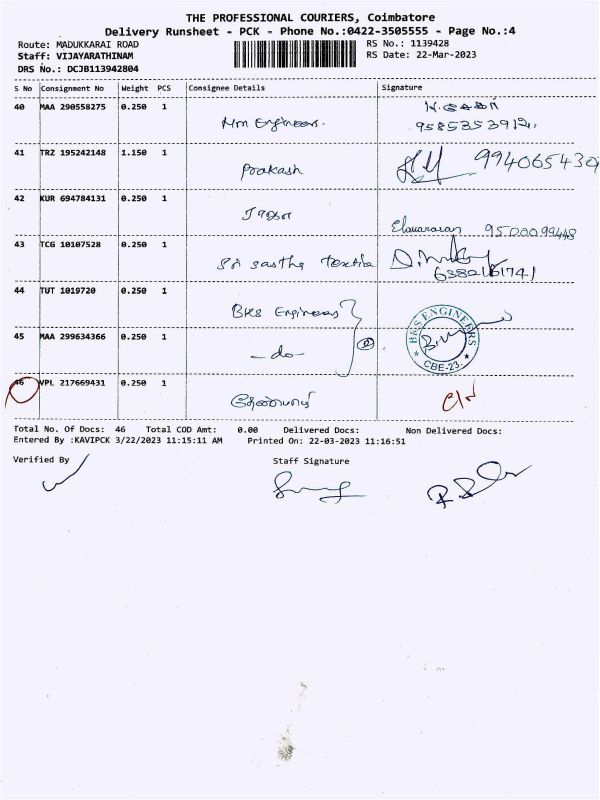 THE PROFESSIONAL COURIERS, Coimbatore
Delivery Runsheet - PCK - Phone No.:0422-3505555 - Page No.:4
Route: MADUKKARAI ROAD
RS No.: 1139428
Staff: VIJAYARATHINAM
RS Date: 22-Mar-2023
DRS No.: DCJB113942804
S No Consignment No Weight PCS Consignee Details Signature
40 MAA 290558275 0.250 1
Mm Engineers.
41 TRZ 195242148 1.150 1
Prakash
42 KUR 694784131 0.250 1
Elavarasan 9500099448
43 TCG 10107528 0.250 1
Sri sastha textile
44 TUT 1019720 0.250 1
BKS Engineers
45 MAA 299634366 0.250 1
- do -
BKS ENGINEERS
CBE-23.
46 VPL 217669431 0.250 1
Total No. Of Docs: 46 Total COD Amt: 0.00 Delivered Docs: Non Delivered Docs:
Entered By :KAVIPCK 3/22/2023 11:15:11 AM Printed On: 22-03-2023 11:16:51
Verified By Staff Signature